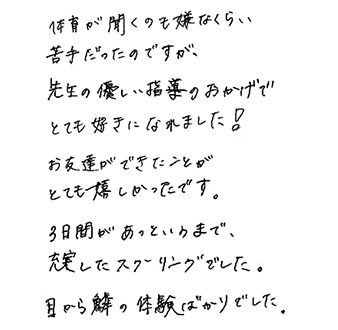 体育が聞くのも嫌なくらい
苦手だったのですが、
先生の優しい指導のおかげで
とても好きになれました！
お友達ができたことが
とても嬉しかったです。
3日間があっというまで、
充実したスクーリングでした。
目から鱗の体験ばかりでした。